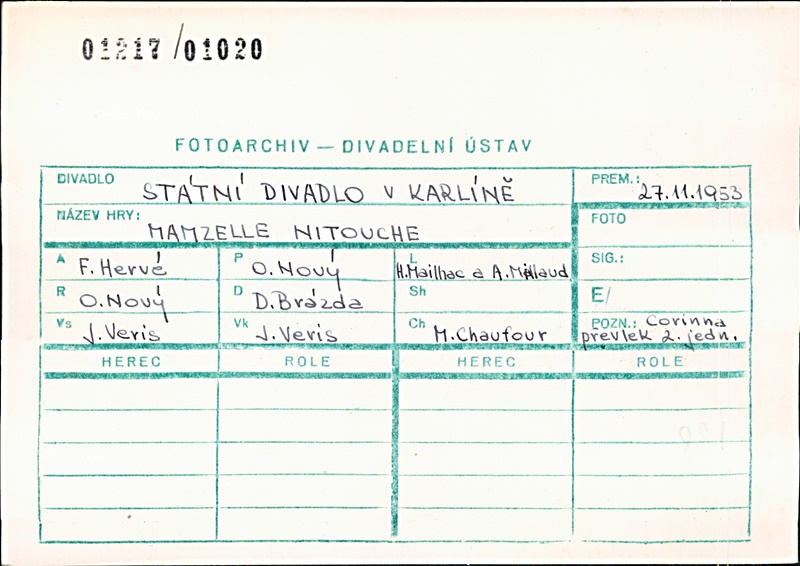 01217/01020
FOTOARCHIV — DIVADELNÍ ÚSTAV
DIVADLO STÁTNÍ DIVADLO V KARLÍNĚ PREM.: 27.11.1953
NÁZEV HRY: MAMZELLE NITOUCHE FOTO
A F. Hervé P O. Nový L H. Mailhac a A. Millaud SIG.:
R O. Nový D D. Brázda Sh E/
Vs J. Veris Vk J. Veris Ch M. Chaufour POZN.: Corinna
prevlek 2. jedn.
HEREC ROLE HEREC ROLE